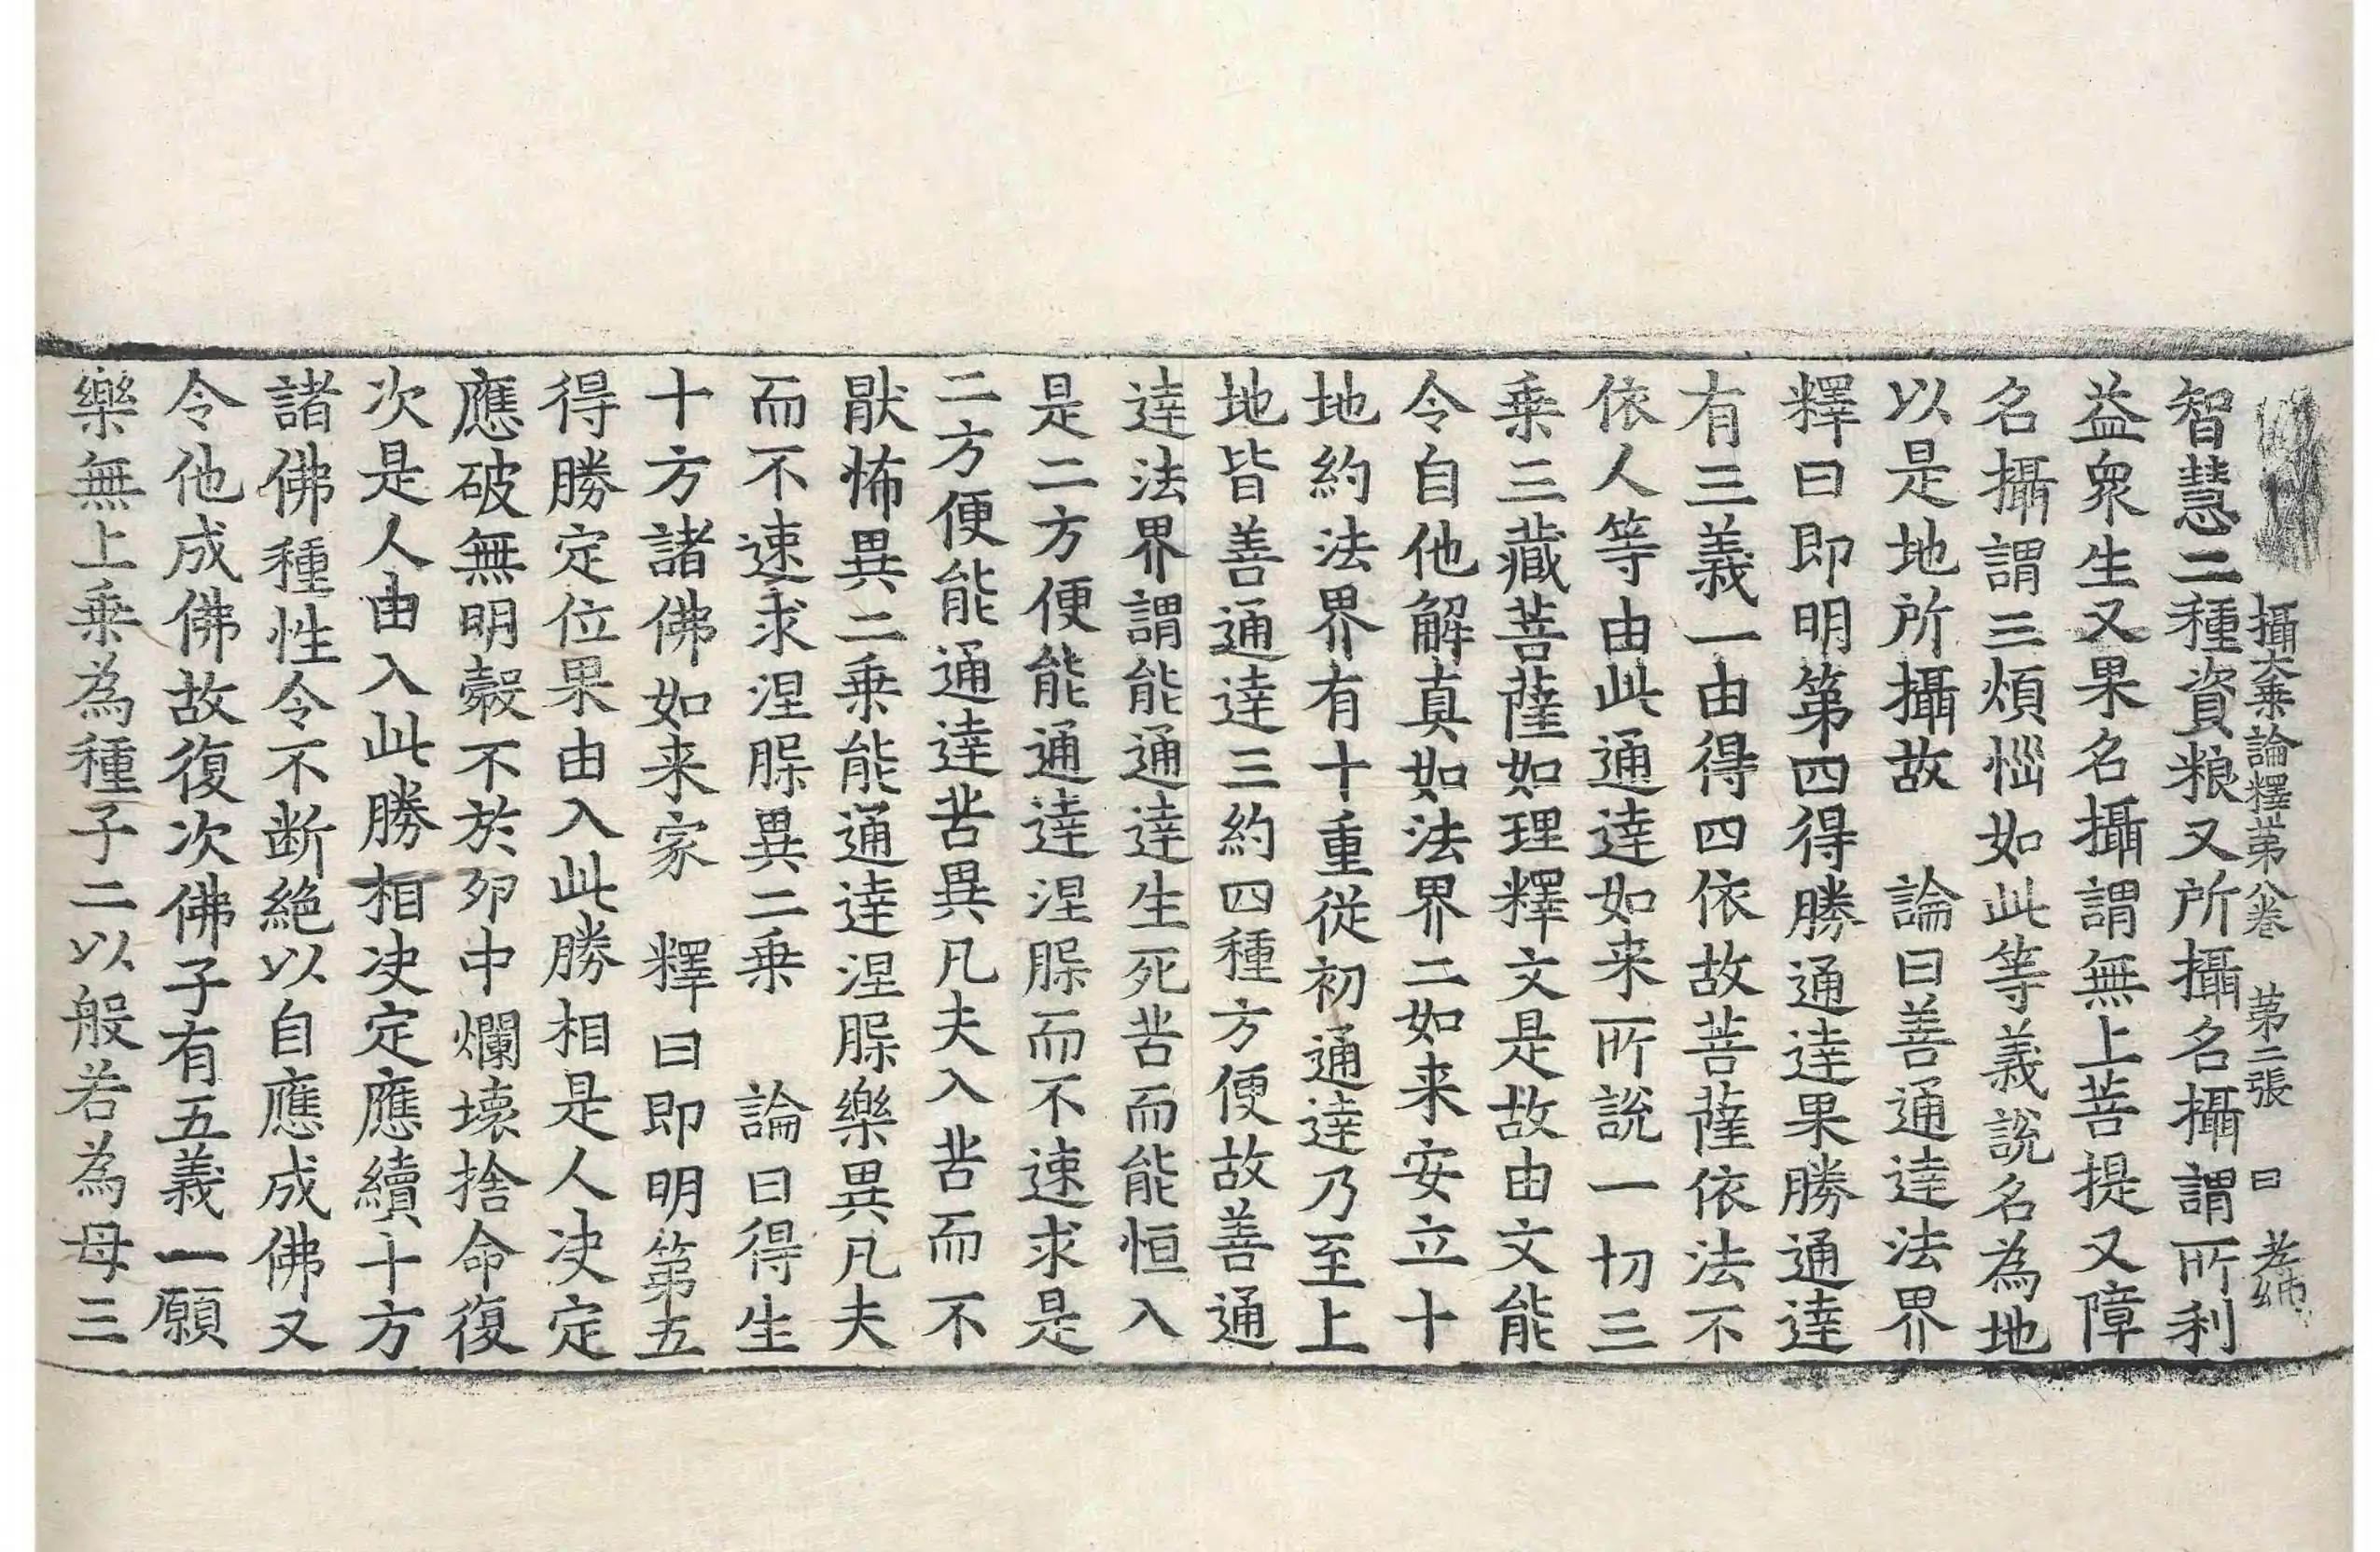 攝大乘論釋第八卷　第二張　曰
智慧二種資粮又所攝名攝謂所利
益衆生又果名攝謂無上菩提又障
名攝謂三煩惱如此等義說名為地
以是地所攝故　論曰善通達法界
釋曰即明第四得勝通達果勝通達
有三義一由得四依故菩薩依法不
依人等由此通達如来所說一切三
乘三藏菩薩如理釋文是故由文能
令自他解真如法界二如来安立十
地約法界有十重從初通達乃至上
地皆善通達三約四種方便故善通
達法界謂能通達生死苦而能恒入
是二方便能通達涅槃而不速求是
二方便能通達苦異凡夫入苦而不
猒怖異二乘能通達涅槃樂異凡夫
而不速求涅槃異二乘　論曰得生
十方諸佛如来家　釋曰即明第五
得勝定位果由入此勝相是人决定
應破無明㲉不於卵中爛壞捨命復
次是人由入此勝相决定應續十方
諸佛種性令不断絶以自應成佛又
令他成佛故復次佛子有五義一願
樂無上乘為種子二以般若為母三